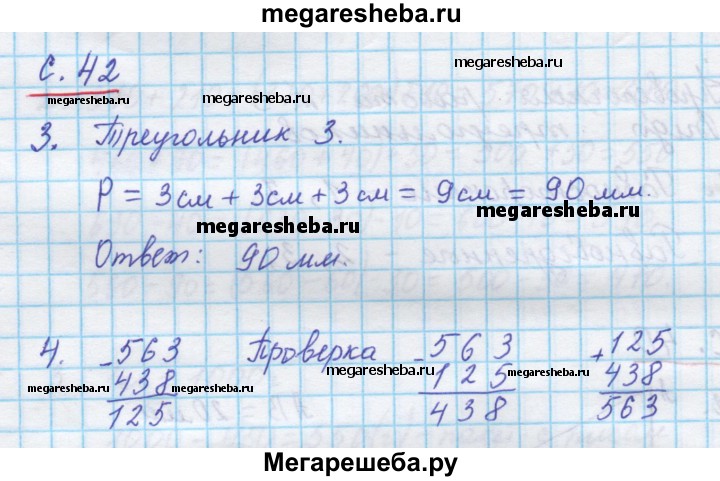 megaresheba.ru
с. 42
megaresheba.ru
megaresheba.ru
megaresheba.ru
3. Треугольник 3.
P = 3см + 3см + 3см = 9см = 90 мм.
megaresheba.ru
megaresheba.ru
Ответ: 90 мм.
4. -563 Проверка -563 +125
438 125 438
megaresheba.ru
megaresheba.ru
megaresheba.ru
megaresheba.ru
125 438 563
Мегарешеба.ру